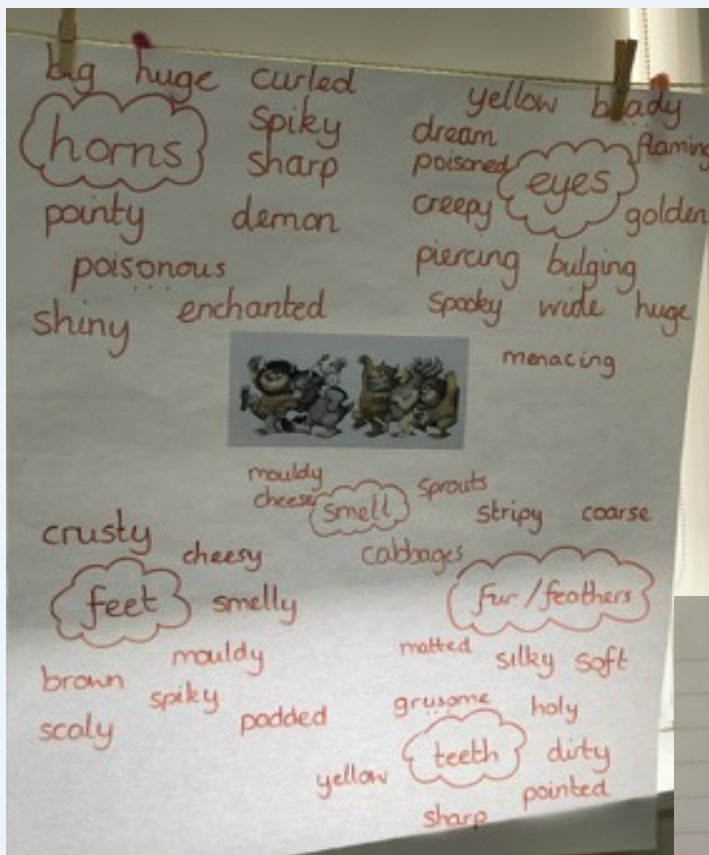 big huge curled
horns
spiky
sharp
pointy demon
poisonous
shiny enchanted
yellow beady
dream
poisoned
flaming
eyes
creepy
golden
piercing bulging
spooky wide huge
menacing
mouldy
cheese
smell
sprouts
cabbages
crusty
cheesy
feet
smelly
mouldy
brown
spiky
scaly
padded
stripy coarse
fur/feathers
matted
silky soft
grusome holy
teeth
dirty
yellow
pointed
sharp